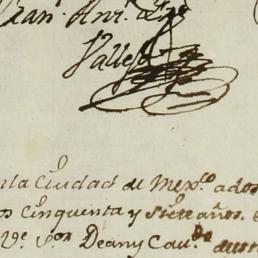 Juan. Ant.º
Vallejo
la Ciudad de Mex.co ados
os cinquenta y siete años.
Ve. S.or Dean y Cav.do